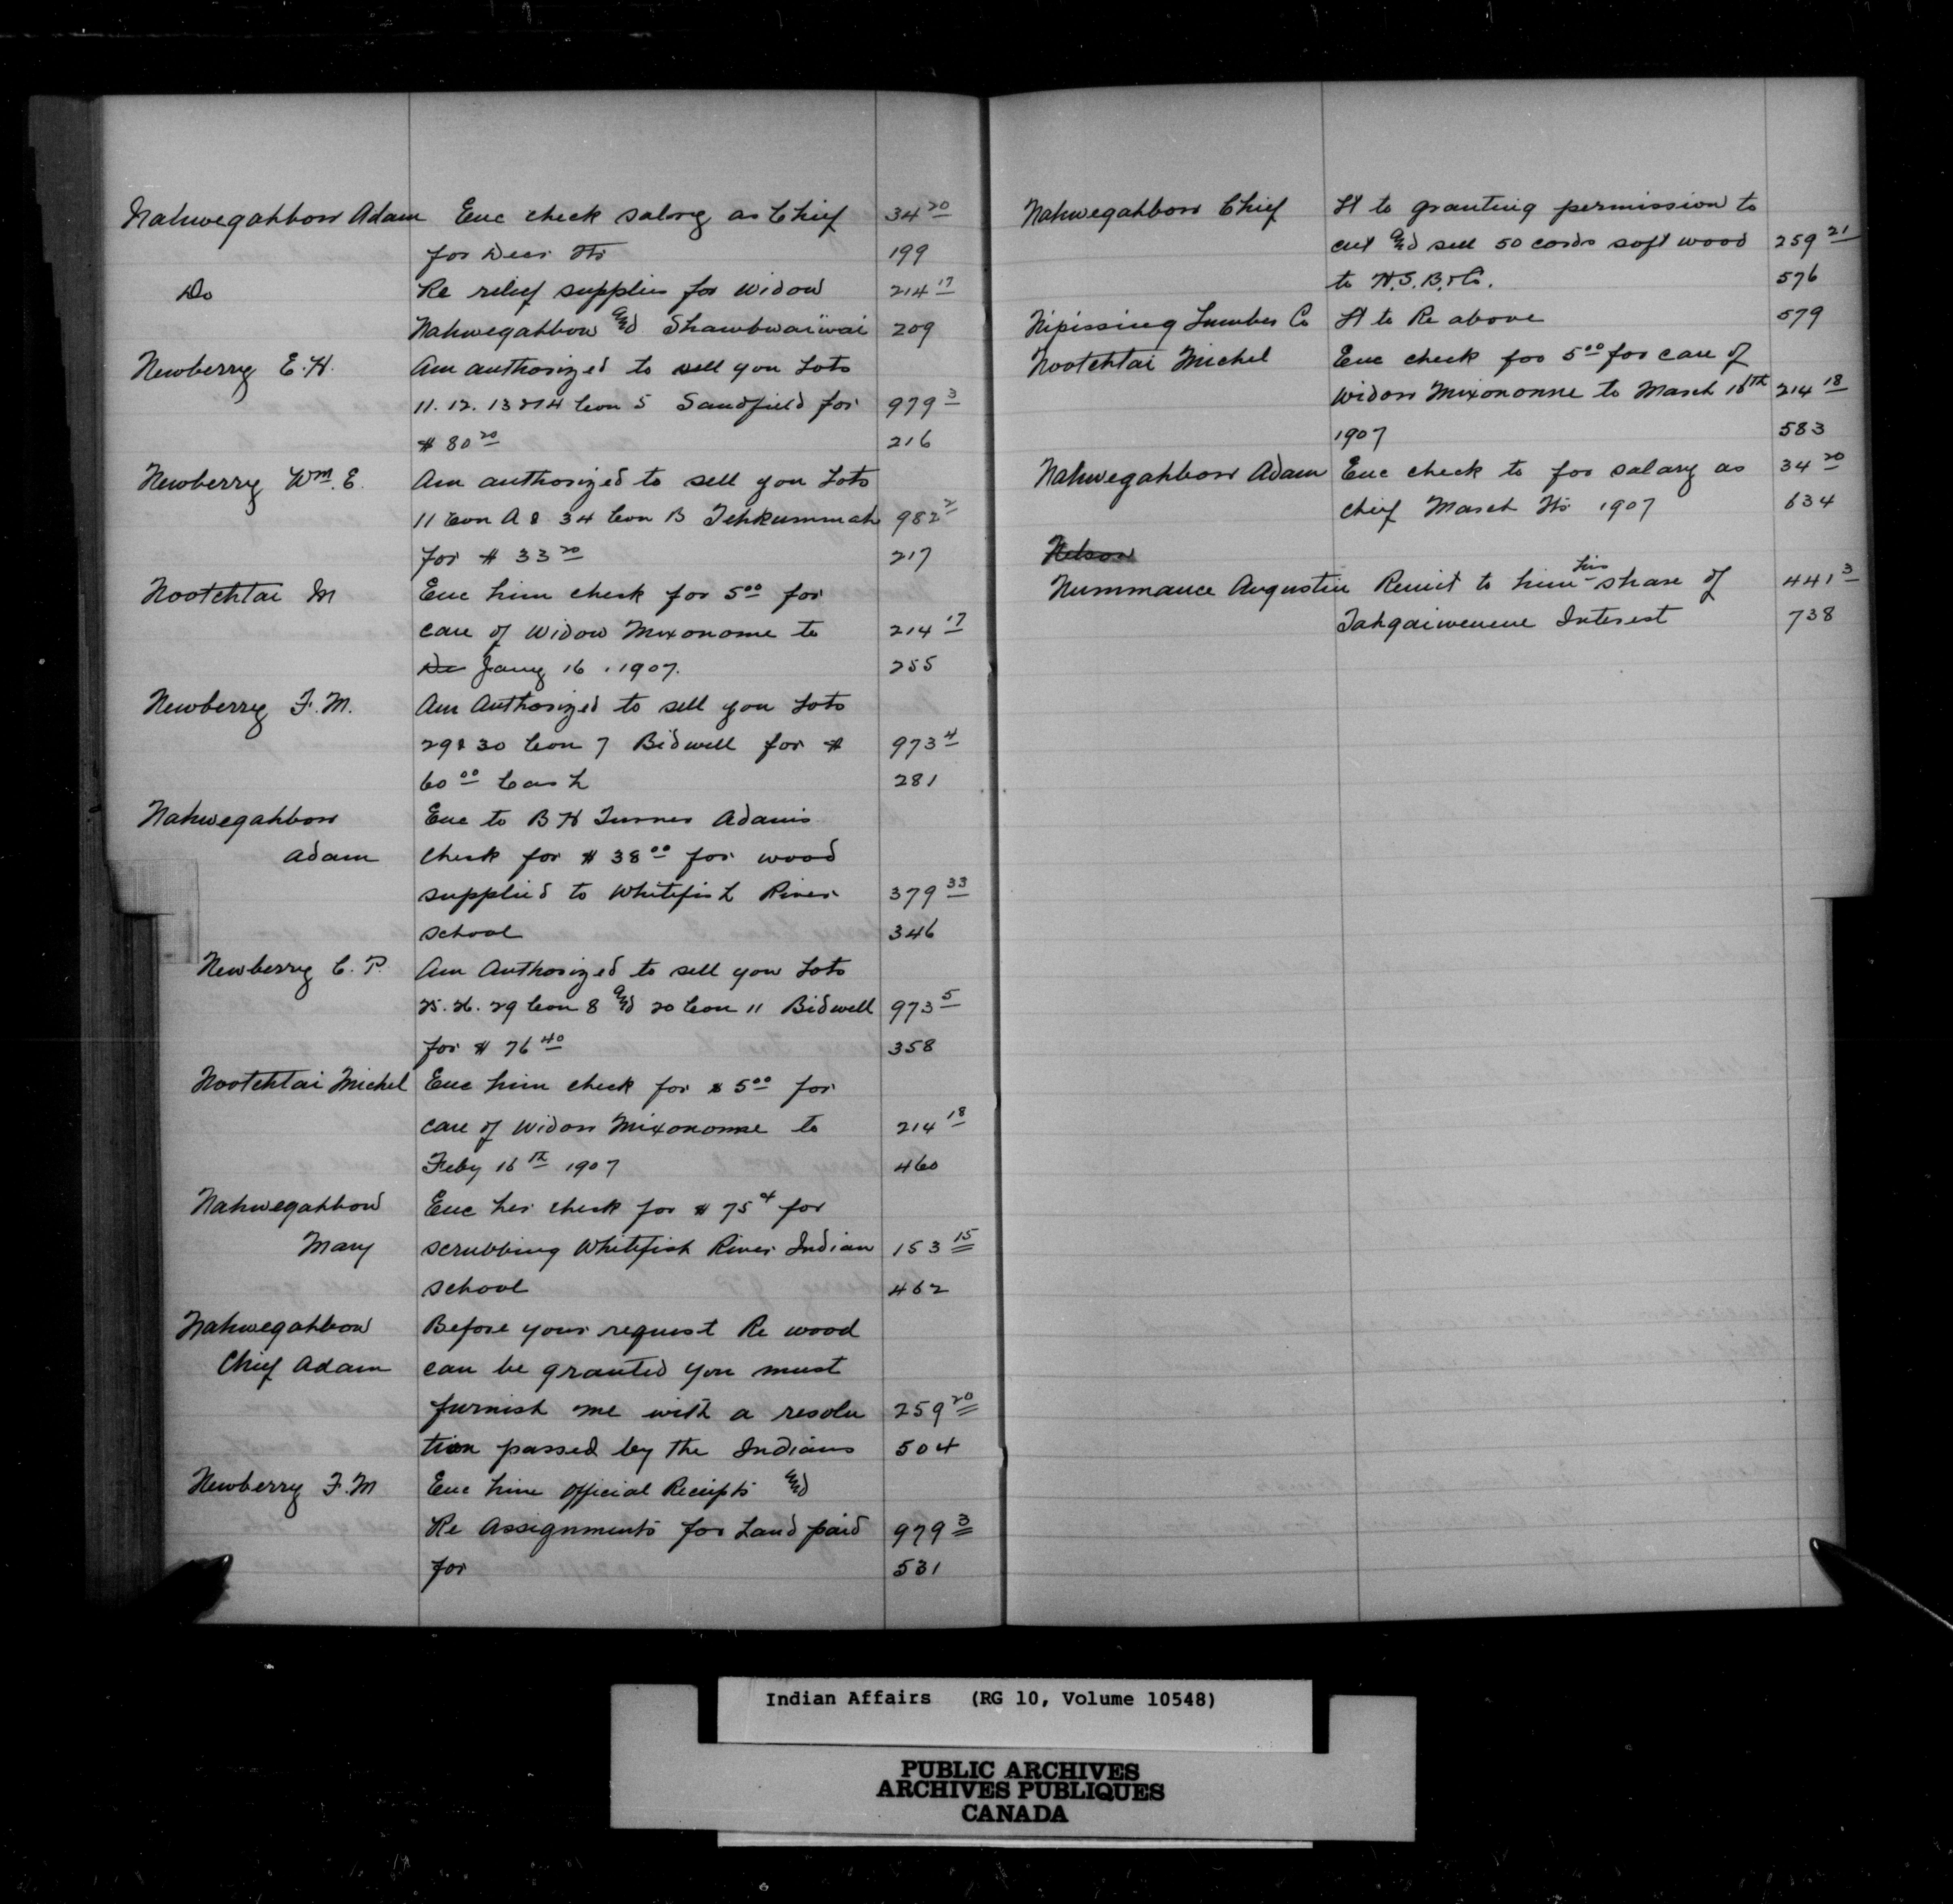 Nahwegahbow Adam Enc check salary as Chief 34 20
for Decr Qtr 199
Do Re relief supplies for Widow 214 17
Nahwegahbow and Shawbwaiwai 209
Newberry E.H. Am authorized to sell you Lots
11. 12. 13 & 14 Con 5 Sandfield for 979 3
$ 80 20 216
Newberry Wm. E. Am authorized to sell you Lots
11 Con A & 34 Con B Tehkummah 982 2
for $ 33 20 217
Nootchtai M Enc him check for 5 00 for
care of Widow Mixonome to 214 17
De Jany 16, 1907. 255
Newberry F.M. Am Authorized to sell you Lots
29 & 30 Con 7 Bidwell for $ 973 4
60 00 Cash 281
Nahwegahbow Enc to B H Turner Adams
Adam check for $ 38 00 for wood
supplied to Whitefish River 379 33
school 346
Newberry C. P. Am Authorized to sell you Lots
25. 26. 29 Con 8 and 20 Con 11 Bidwell 973 5
for $ 76 40 358
Nootchtai Michel Enc him check for $ 5 00 for
care of Widow Mixonome to 214 18
Feby 16th 1907 460
Nahwegahbow Enc her check for $ 75 ¢ for
Mary scrubbing Whitefish River Indian 153 15
school 462
Nahwegahbow Before your request Re wood
Chief Adam can be granted you must
furnish me with a resolu 259 20
tion passed by the Indians 504
Newberry F.M Enc him Official Receipts and
Re Assignments for Land paid 979 3
for 531
Nahwegahbow Chief to granting permission to
cut and sell 50 cords soft wood 259 21
to H.S.B. & Co. 576
Nipissing Lumber Co to Re above 579
Nootchtai Michel Enc check for 5 00 for care of
Widow Mixonome to March 16th 214 18
1907 583
Nahwegahbow Adam Enc check to for salary as 34 20
chief March Qtr 1907 634
Nelson
Nummance Augustin Remit to him his share of 441 3
Tahgaiwenene Interest 738
Indian Affairs (RG 10, Volume 10548)
PUBLIC ARCHIVES
ARCHIVES PUBLIQUES
CANADA